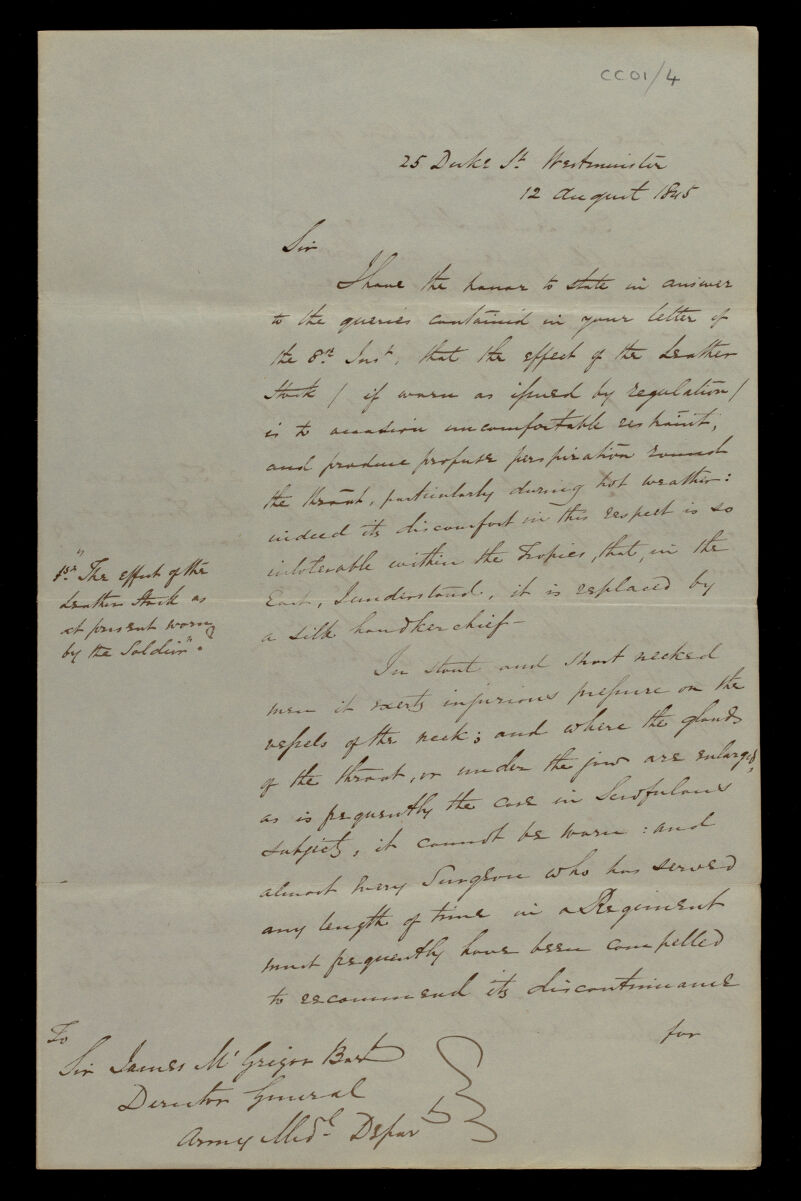 CC01/4
25 Duke St. Westminster
12 August 1845
Sir
I have the honor to state in answer
to the queries contained in your letter of
the 8th. Inst., that the effect of the Leather
Stock / if worn as issued by regulation /
is to occasion uncomfortable restraint,
and produce profuse perspiration round
the throat, particularly during hot weather:
indeed its discomfort in this respect is so
intolerable within the Tropics, that, in the
East, I understand, it is replaced by
a silk handkerchief—
1st. "The effect of the
Leather Stock as
at present worn
by the Soldier".
In stout and short necked
men it exerts injurious pressure on the
vessels of the neck; and where the glands
of the throat, or under the jaw are enlarged,
as is frequently the case in Scrofulous
subjects, it cannot be worn: and
almost every Surgeon who has served
any length of time in a Regiment
must frequently have been compelled
to recommend its discontinuance
for
To
Sir James McGrigor Bart
Director General
Army Medl. Depart